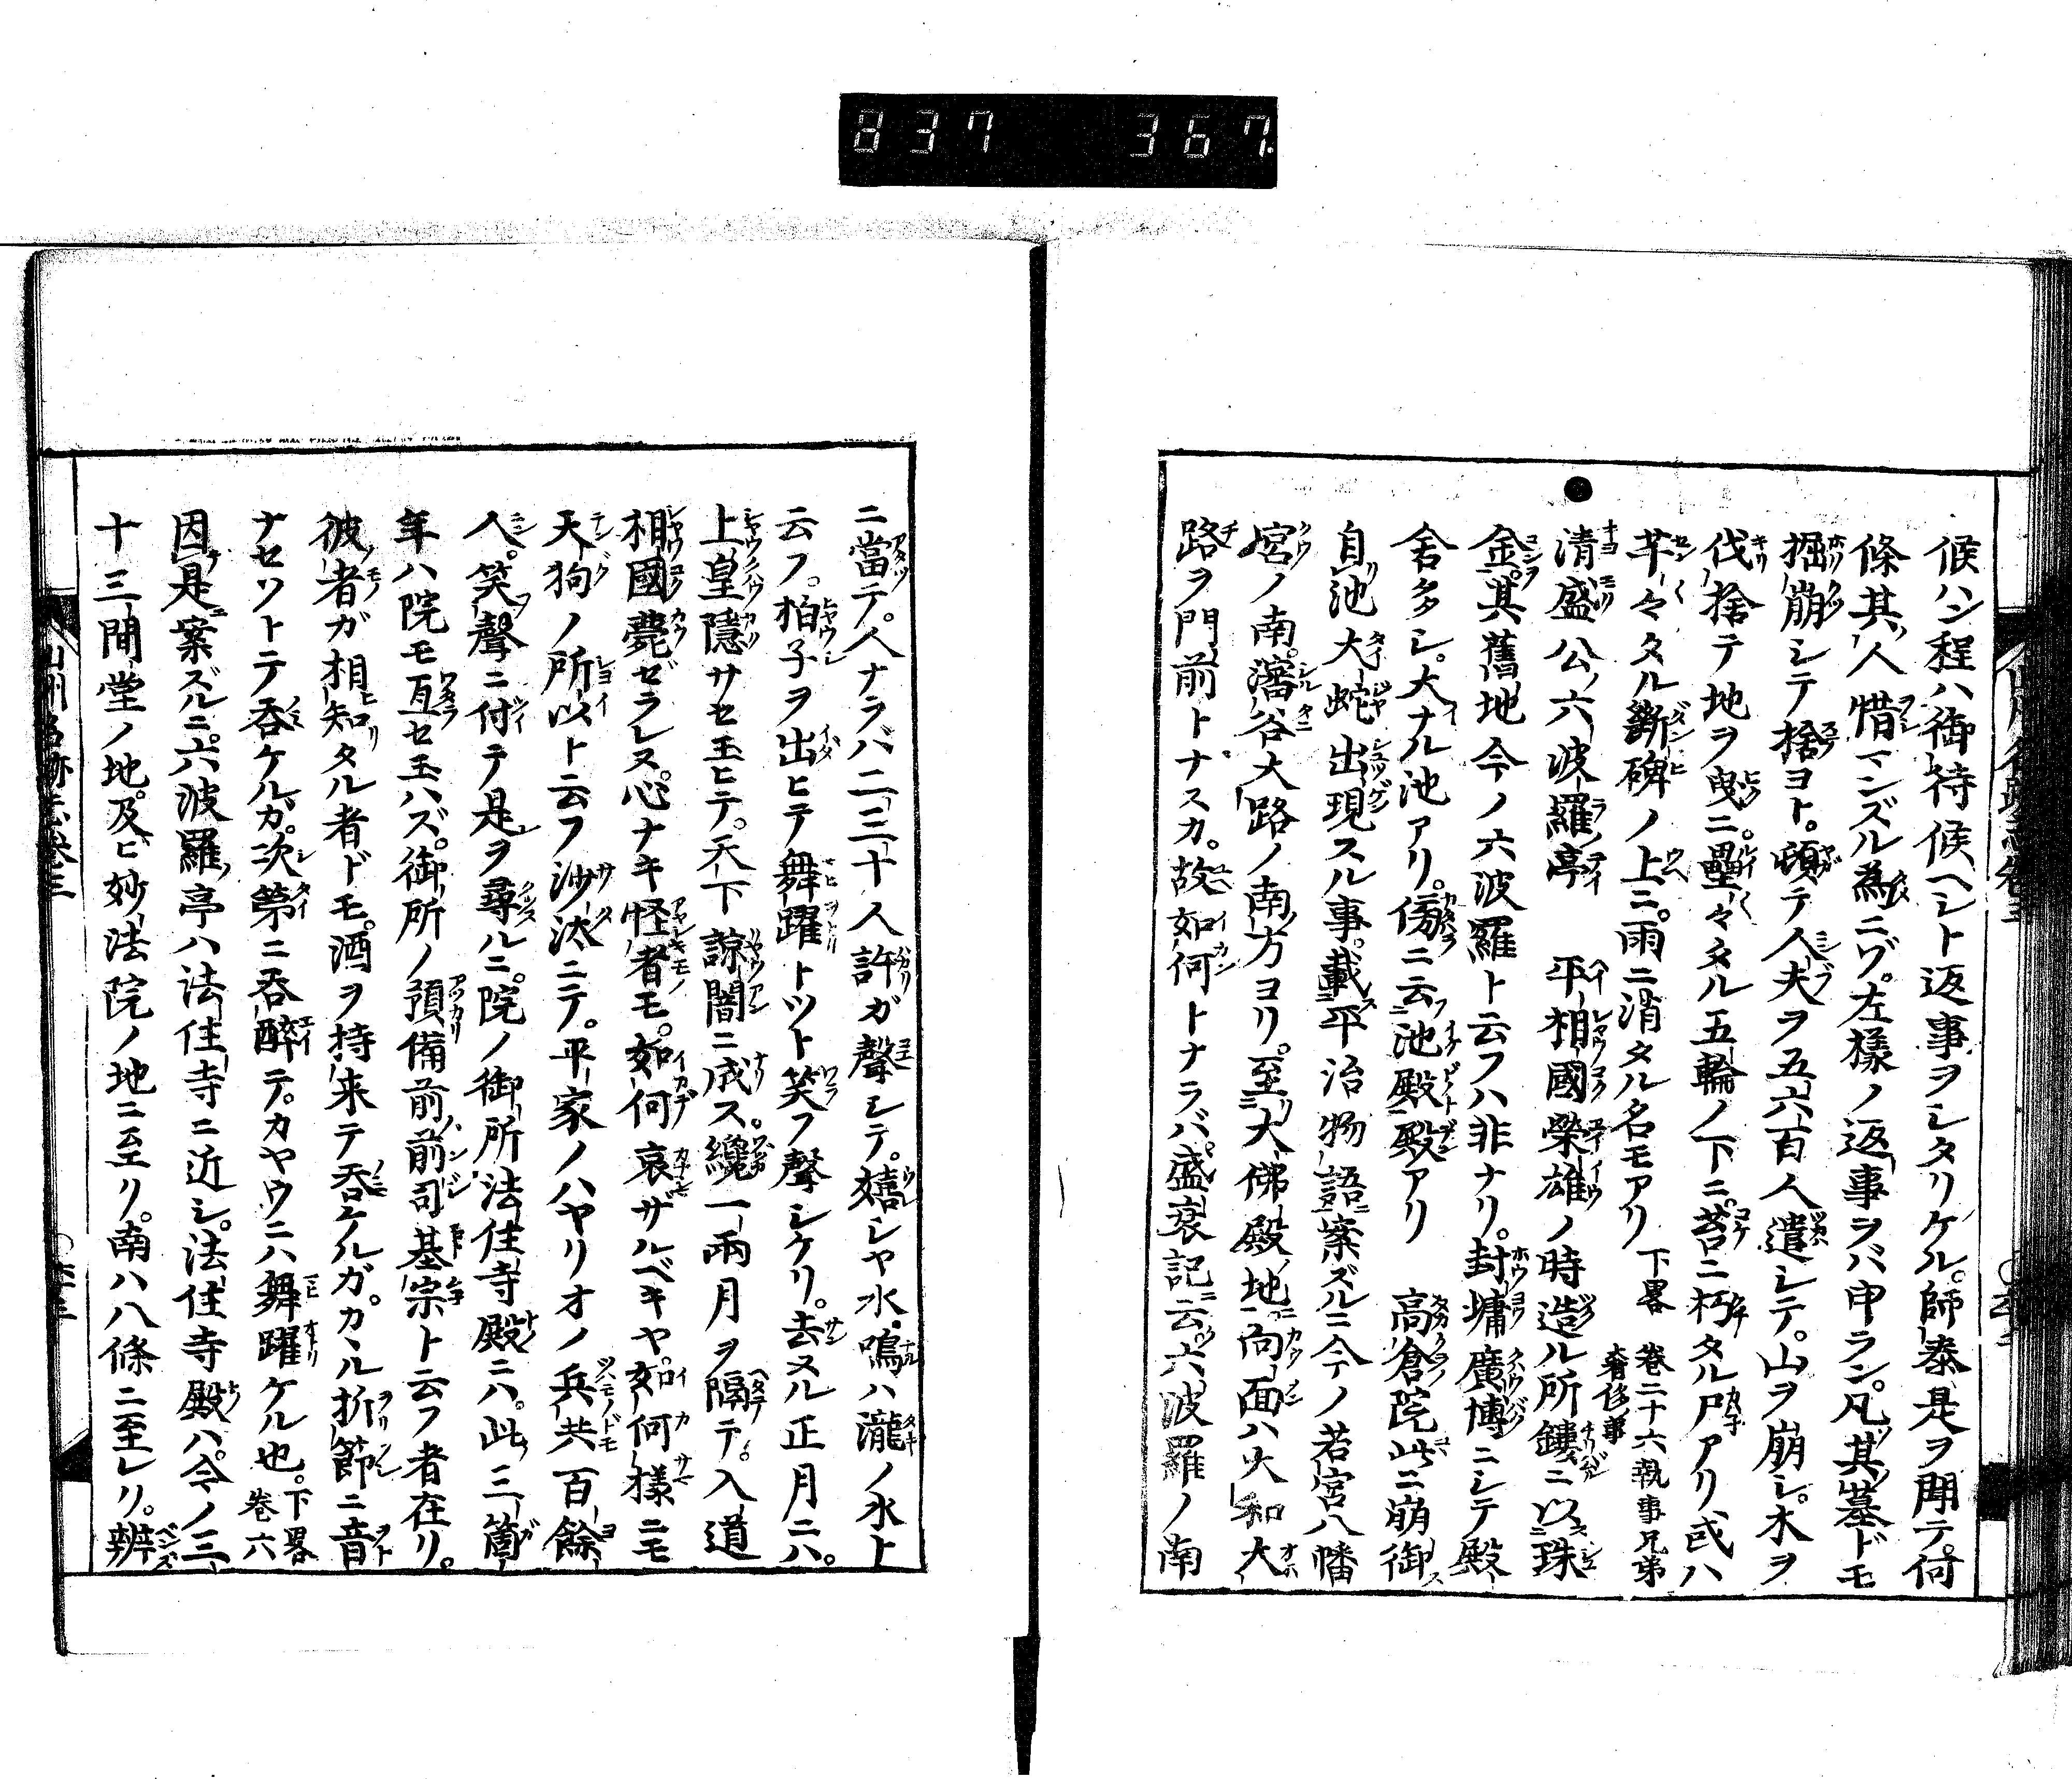 837 367
候ハン程ハ御待候ヘシト返事ヲシタリケル。師泰是ヲ聞テ。何
條其人惜マンズル為ニゾ。左様ノ返事ヲバ申ラン。凡其墓ドモ
掘崩シテ捨ヨト。頓テ人夫ヲ五六百人遣シテ。山ヲ崩シ。木ヲ
伐捨テ地ヲ曳ニ。壘々タル五輪ノ下ニ。苔ニ朽タル尸アリ。或ハ
芊々タル斷碑ノ上ニ。雨ニ消タル名モアリ 下畧 卷二十六執事兄弟
奢侈事
●清盛公六波羅亭 平相國榮雄ノ時造ル所鏤ニ以珠
金。其舊地今ノ六波羅ト云フハ非ナリ。封墉廣博ニシテ殿
舍多シ。大ナル池アリ。傍ニ云池殿殿アリ 高倉院此ニ崩御
自池大蛇出現スル事。載平治物語案ズルニ今ノ若宮八幡
宮ノ南。瀋谷大路ノ南方ヨリ。至大佛殿地向面ハ大和大
路ヲ門前トナスカ。故如何トナラバ。盛衰記云。六波羅ノ南
ニ當テ。人ナラバ二三十人許ガ聲シテ。嬉シヤ水。鳴ハ瀧ノ水ト
云フ。拍子ヲ出ヒテ舞躍トツト笑フ聲シケリ。去ヌル正月ニハ。
上皇隱サセ玉ヒテ。天下諒闇ニ成ス。纔一兩月ヲ隔テ。入道
相國薨ゼラレヌ。心ナキ怪者モ。如何哀ザルベキヤ。如何樣ニモ
天狗ノ所以ト云フ沙汰ニテ。平家ノハヤリオノ兵共百餘
人。笑聲ニ付テ是ヲ尋ルニ。院ノ御所法住寺殿ニハ。此三箇
年ハ院モ亙セ玉ハズ。御所ノ預備前前司基宗ト云フ者在リ。
彼者ガ相知タル者ドモ。酒ヲ持来テ呑ケルガ。カヽル折節ニ音
ナセソトテ呑ケルガ。次第ニ呑醉テ。カヤウニハ舞躍ケル也。下畧
卷六
因是案ズルニ。六波羅亭ハ法住寺ニ近シ。法住寺殿ハ。今ノ三
十三間堂ノ地。及ヒ妙法院ノ地ニ至リ。南ハ八條ニ至レリ。辨
山州名跡志卷三